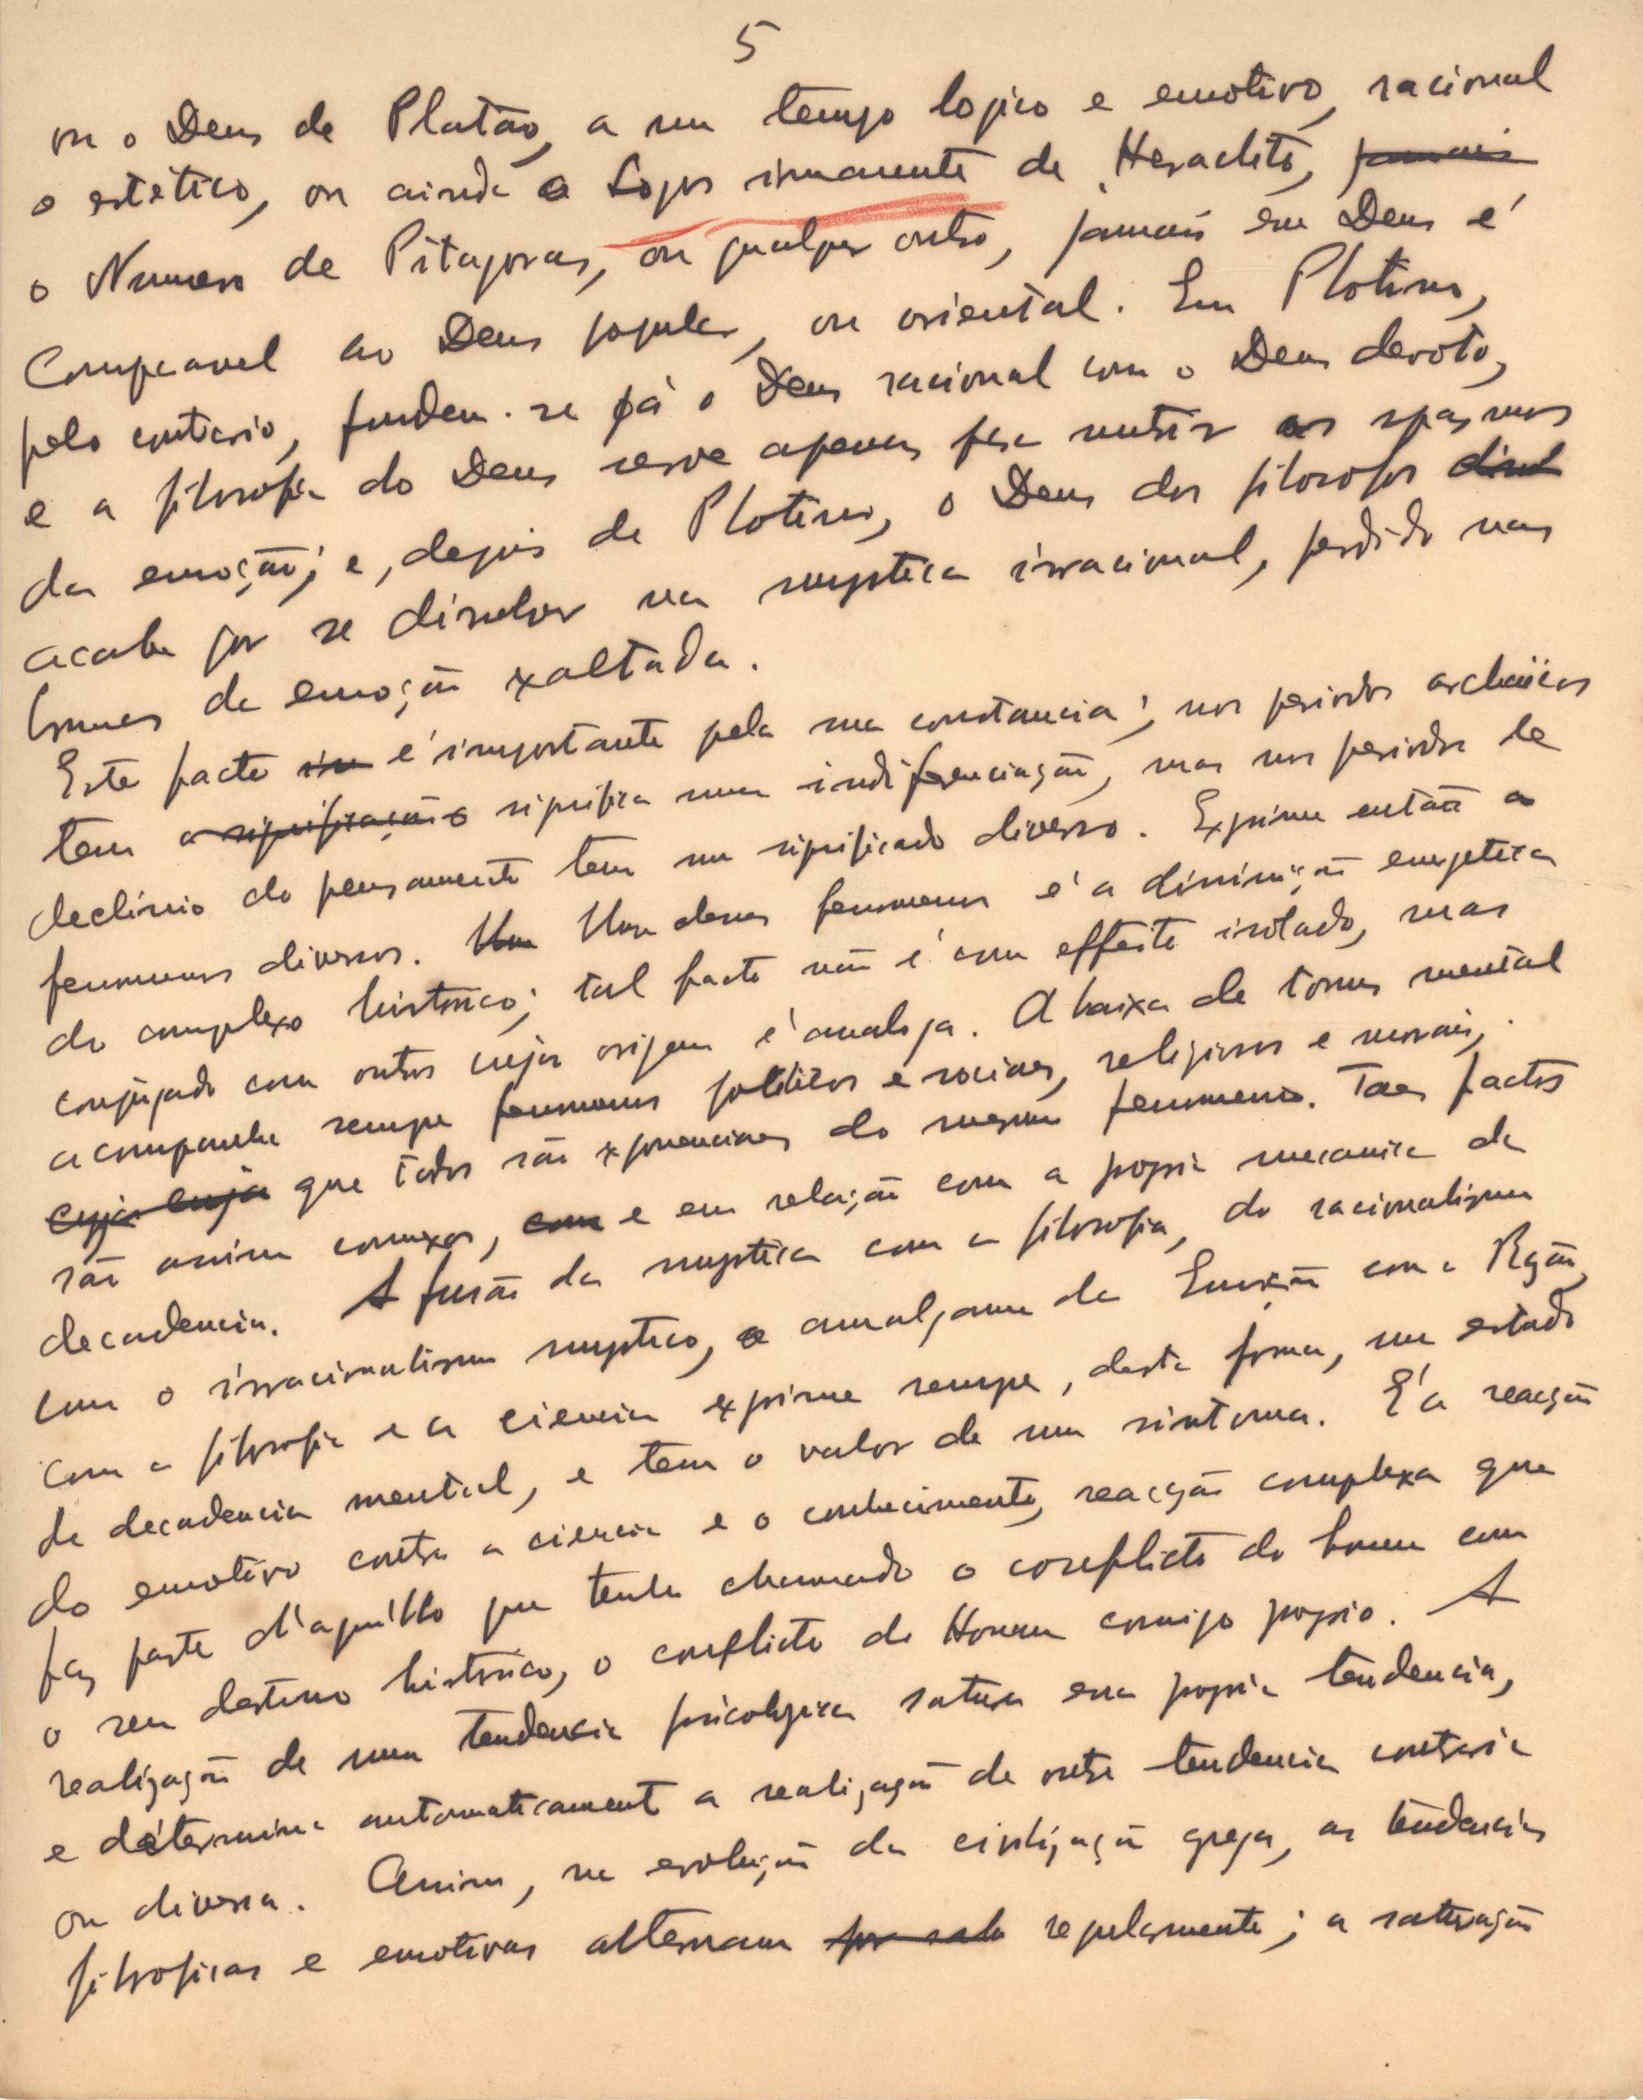 5
ou o Deus de Platão, a um tempo logico e emotivo, racional
o estético, ou ainda o Logos immanente de Heraclito, jamais
o Numero de Pitagoras, ou qualquer outro, jamais esse Deus é
comparavel ao Deus popular, ou oriental. Em Plotino,
pelo contrario, fundem-se já o Deus racional com o Deus devoto,
e a filosofia do Deus serve apenas para nutrir os espasmos
da emoção; e, depois de Plotino, o Deus dos filosofos
acaba por se dissolver na mystica irracional, perdido nas
brumas da emoção exaltada.
Este facto é importante pela sua constancia; nos periodos archaïcos
tem a significação significa uma indiferenciação, mas nos periodos de
declinio do pensamento tem um significado diverso. Exprime então
fenomenos diversos. Um Um desses fenomenos é a diminuição energetica
do complexo historico; tal facto não é um effeito isolado, mas
conjugado com outros cuja origem é analoga. A baixa de tonus mental
acompanha sempre fenomenos politicos e sociaes, religiosos e moraes,
cuja cuja que todos são exponenciaes do mesmo fenomeno. Taes factos
são assim connexos, com e em relação com a propria mecanica da
decadencia. A fusão da mystica com a filosofia, do racionalismo
com o irracionalismo mystico, o amalgama da Emoção com a Rasão,
com a filosofia e a ciencia exprime sempre, desta forma, um estado
de decadencia mental, e tem o valor de um sintoma. É a reacção
do emotivo contra a ciencia e o conhecimento, reacção complexa que
faz parte d'aquillo que tenho chamado o conflicto do homem com
o seu destino historico, o conflicto do Homem comsigo proprio. A
realização de uma tendencia psicologica satura essa propria tendencia,
e determina automaticamente a realização de outra tendencia contraria
ou diversa. Assim, na evolução da civilização grega, as tendencias
filosoficas e emotivas alternam regularmente; a saturação